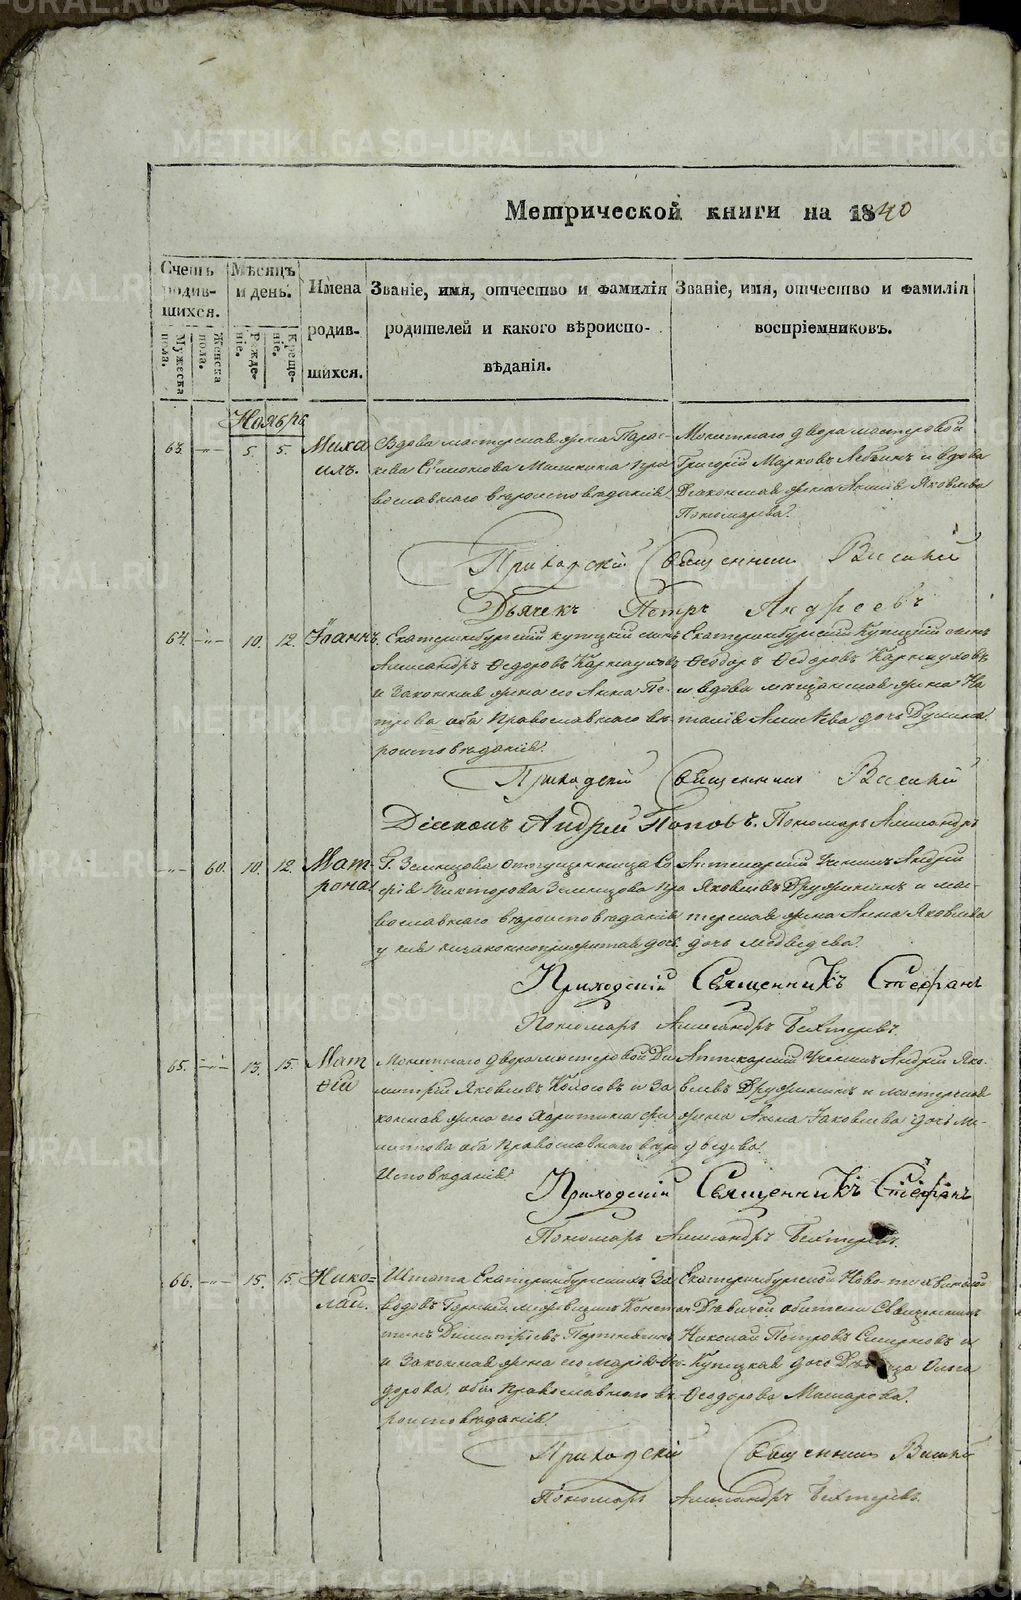 Метрической книги на 1840
Счетъ родив-шихся.
Мужеска пола.
Женска пола.
Мѣсяцъ и день.
Рожде-ніе.
Креще-ніе.
Имена родив-шихся.
Званіе, имя, отчество и фамилія
родителей и какого вѣроиспо-
вѣданія.
Званіе, имя, отчество и фамилія
воспріемниковъ.
Ноябрь
63. 5. 5. Миха
илъ.
Вдова мастерская жена Парас-
кева Симонова Машкина пра
вославнаго вѣроисповѣданія.
Монетнаго двора мастеровой
Григорій Марковъ и вдова
Дьяконская жена Яковлева
Пономарева.
Приходскій Священникъ Василій
Дьячекъ Петръ Андреевъ
64. 10. 12. Іоаннъ.
Екатеринбургскій купецкій сынъ
Александръ Ѳедоровъ Карнауховъ
и законная жена его Анна Пе-
трова оба Православнаго вѣ
роисповѣданія.
Екатеринбургскій Купецкій сынъ
Ѳеодоръ Ѳедоровъ Карнауховъ
и вдова мѣщанская жена На
талія Алексѣева дочь
Приходскій Священникъ Василій
Діаконъ Андрей Поповъ. Пономарь Александръ
60. 10. 12. Мат-
рона
Г. Земцова отпущенница Со
фія Викторова Земцова пра
вославнаго вѣроисповѣданія
у нея незаконноприжитая дочь.
Аптекарскій Ученикъ Андрей
Яковлевъ Дружининъ и мас-
терская жена Анна Яковлева
дочь Медведева.
Приходскій Священникъ Стефанъ
Пономарь Александръ Бехтеревъ.
65. 13. 15. Мат
ѳій
Монетнаго двора мастеровой Ди
митрій Яковлевъ Колосовъ и За
конная жена его Харитина Фи
липпова оба Православнаго вѣро
исповѣданія.
Аптекарскій Ученикъ Андрей Яко-
влевъ Дружининъ и мастерская
жена Анна Іаковлева дочь Ме-
дведева.
Приходскій Священникъ Стефанъ
Пономарь Александръ Бехтеревъ.
66. 15. 15. Нико=
лай.
Штата Екатеринбургскихъ За
водовъ Горный Констан
тинъ Димитріевъ
и Законная жена его Марія Ѳе-
дорова, оба Православнаго вѣ-
роисповѣданія.
Екатеринбургской Ново-тихвинской
Дѣвичей обители Священникъ
Николай Петровъ Смирновъ и
Купецкая дочь Дѣвица Ольга
Ѳеодорова Макарова.
Приходскій Священникъ Василій
Пономарь Александръ Бехтеревъ.
METRIKI.GASO-URAL.RU